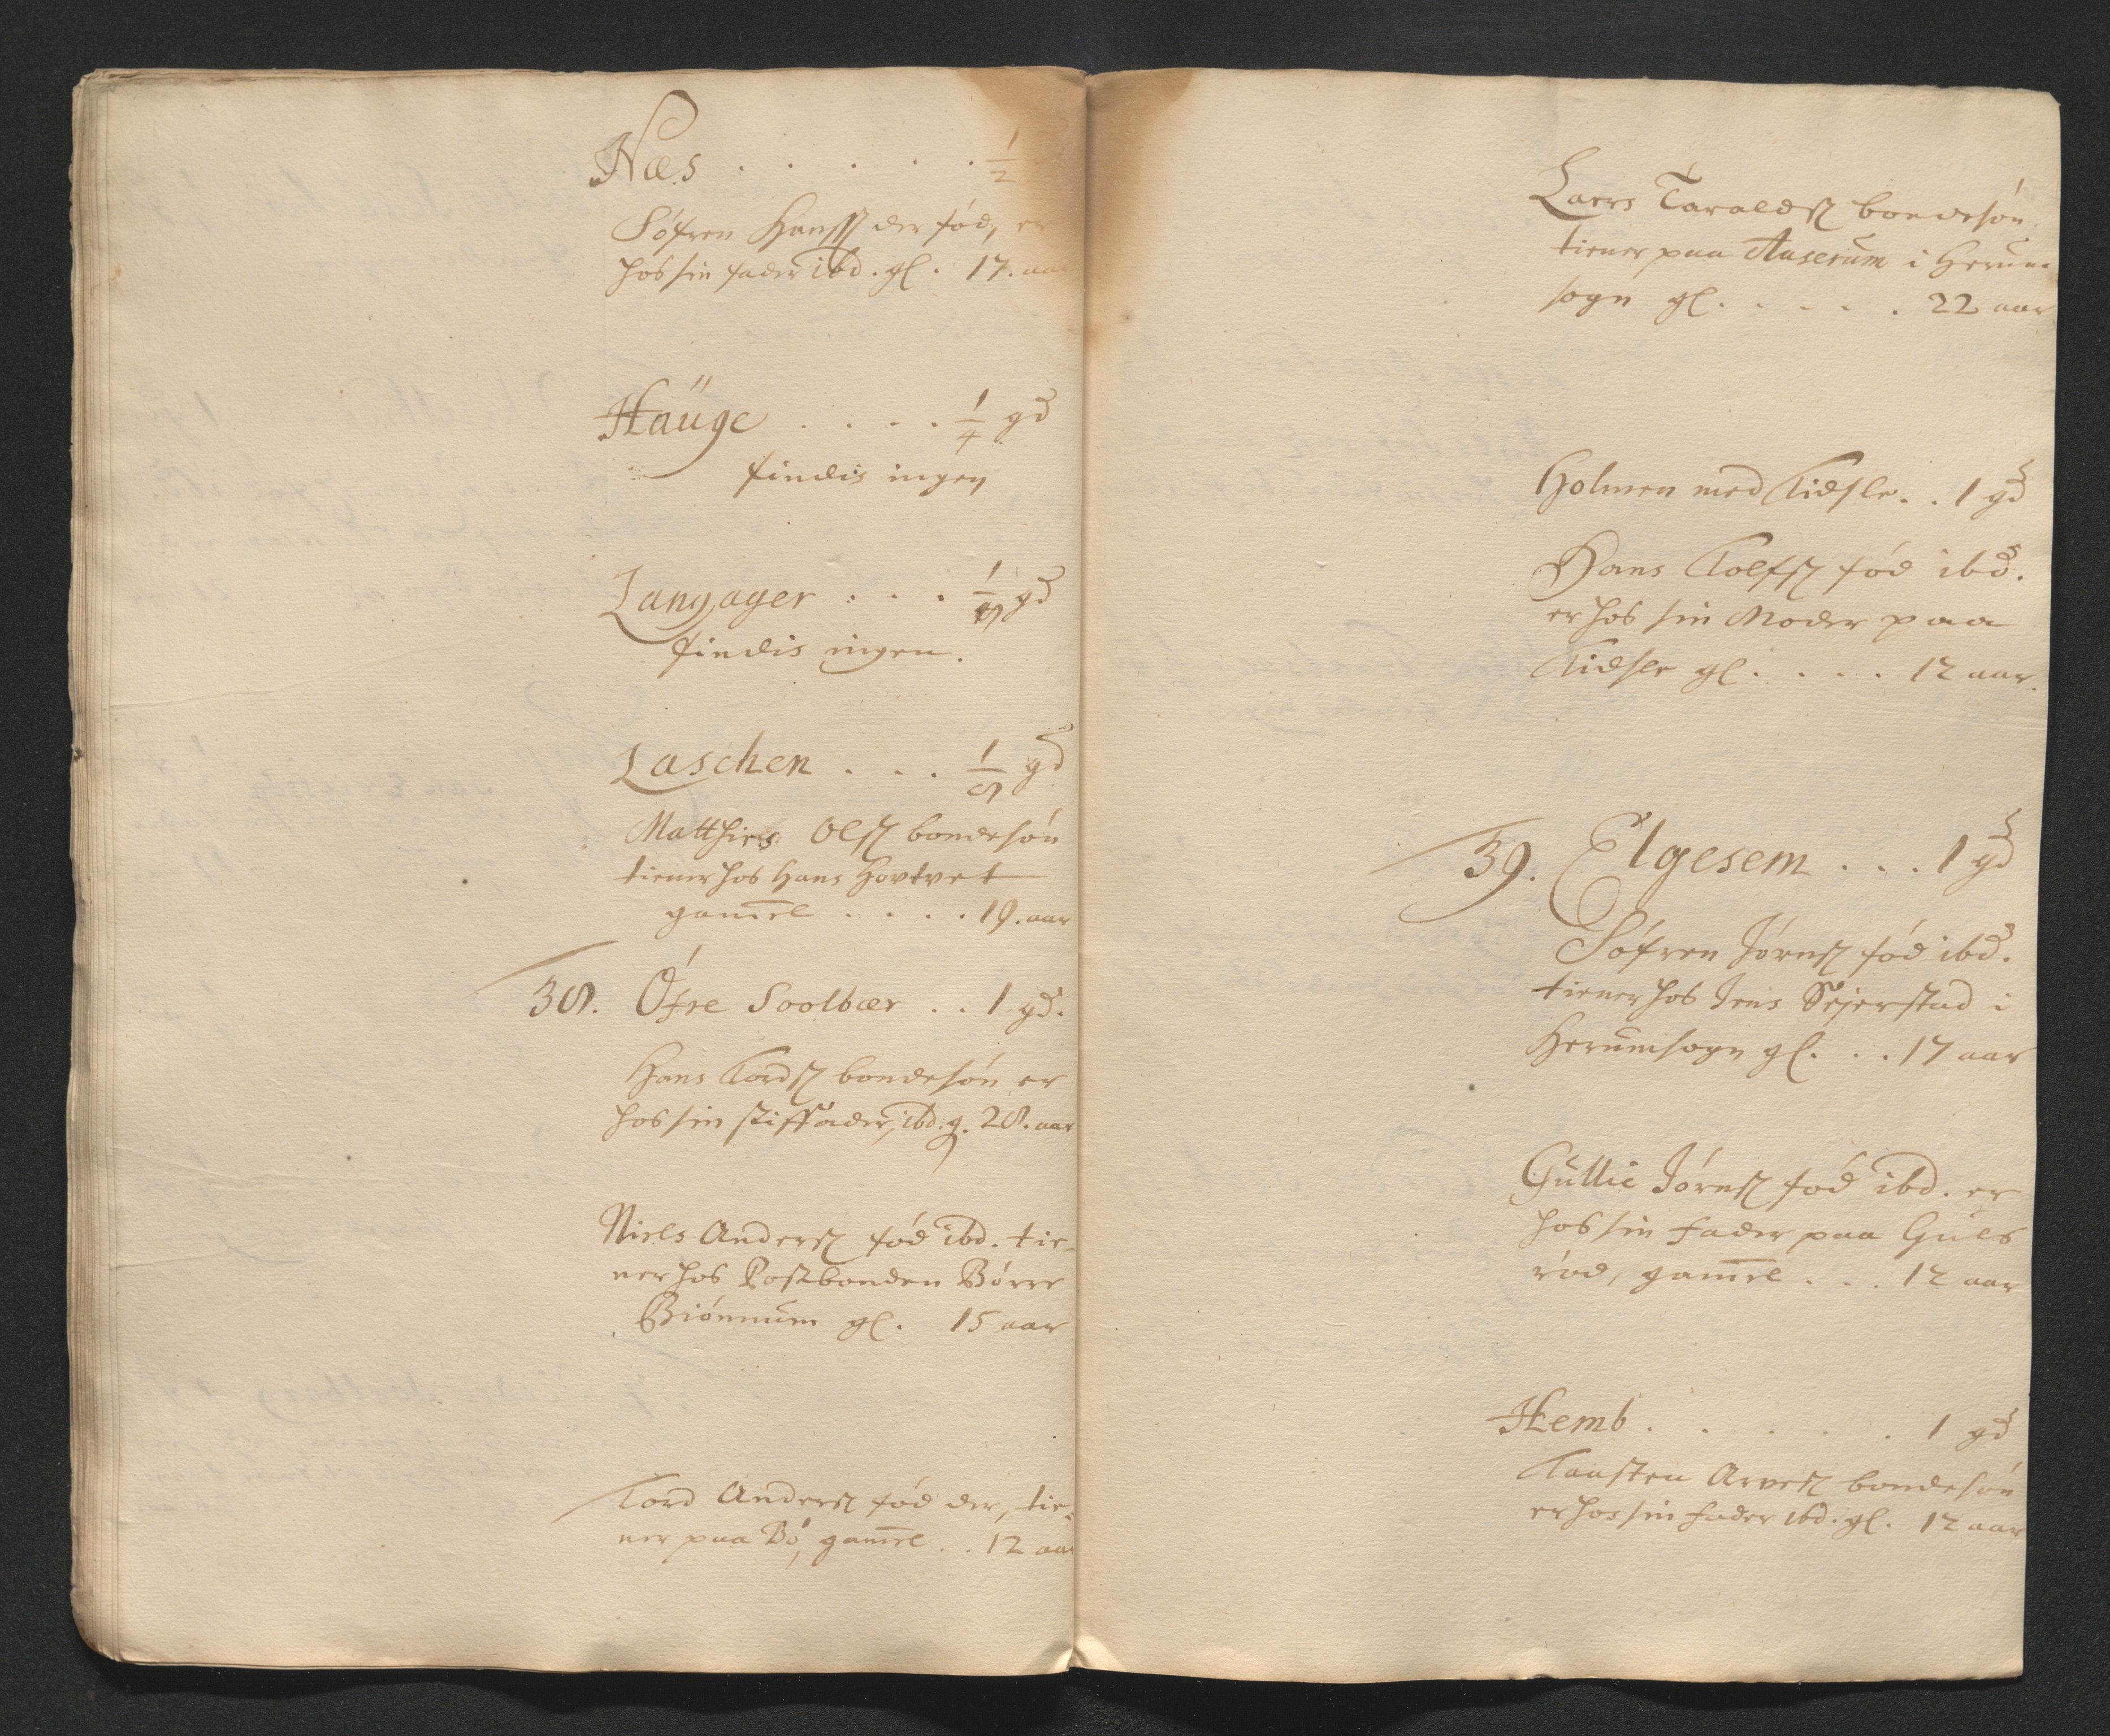 Næs . . . . . . 1/2
Söfren Hanss: der föd, er
hos sin fader ibd. gl. 17. aa
Haüge . . . . . 1/4 gd
findis ingen
Langager . . . . 1/8 gd
findis ingen.
Laschen . . . 1/8 gd
Matthies Ols: bondesön
tiener hos Hans Hovtvet
gam̄el . . . . . 19. aar
38. Öfre Soolbær . . 1 gd.
Hans Tords: bondesön er
hos sin stiffader, ibd. g. 28. aar
Niels Anders: föd ibd. tie-
ner hos Postbonden Börre
Biönnum gl. 15 aar
Tord Anders: föd der, tie-
ner paa Bö, gam̄el . . 12 aar
Laers Taralds: bondesön
tiener paa Aaserum i Herum
sogn gl. . . . . . 22 aar
Holmen med Tidsle . . 1 gd
Hans Tolfs: föd ibd.
er hos sin Moder paa
Tidsle gl. . . . . 12 aar.
39. Elgesem . . . 1 gd
Söfren Jörns: föd ibd.
tiener hos Jens Sejerstad i
Herumsogn gl. . . 17 aar
Gullic Jörns: föd ibd. er
hos sin Fader paa Guls
röd, gam̄el . . . 12 aar
Hemb . . . . . . 1 gd
Taasten Arves: bondesön
er hos sin Fader ibd. gl. 12 aar